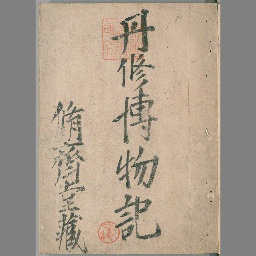 丹修博物記
脩齋堂藏